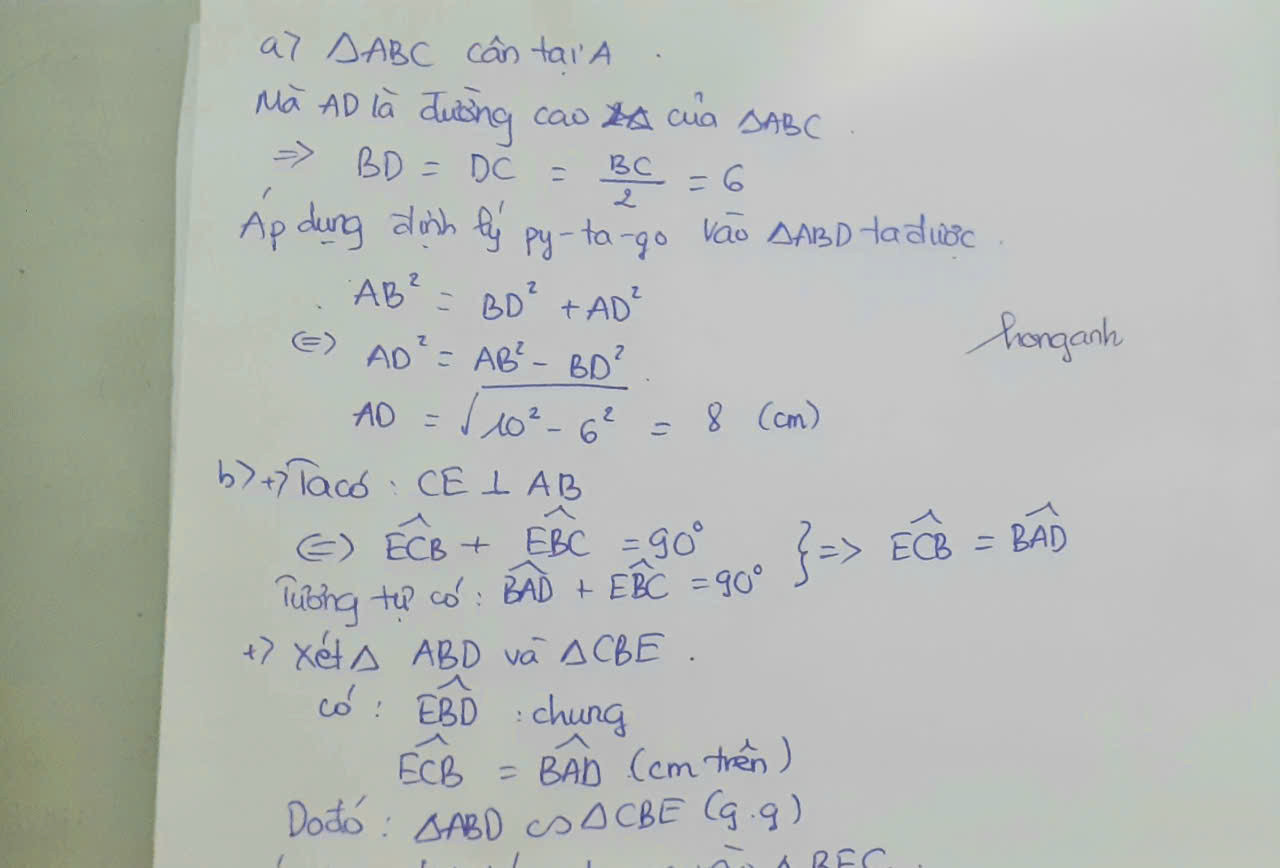 a> △ABC cân tại A .
Mà AD là đường cao của △ABC .
=> BD = DC = BC/2 = 6
Áp dụng định lý py-ta-go vào △ABD ta được .
. AB² = BD² + AD²
<=> AD² = AB² - BD² .
AD = √(10² - 6²) = 8 (cm)
honganh
b> +> Ta có : CE ⊥ AB
<=> ∠ECB + ∠EBC = 90°
Tương tự có : ∠BAD + ∠EBC = 90° } => ∠ECB = ∠BAD
+> Xét △ ABD và △CBE .
có : ∠EBD : chung
∠ECB = ∠BAD (cm trên)
Do đó : △ABD ∽ △CBE (g.g)
△BEC